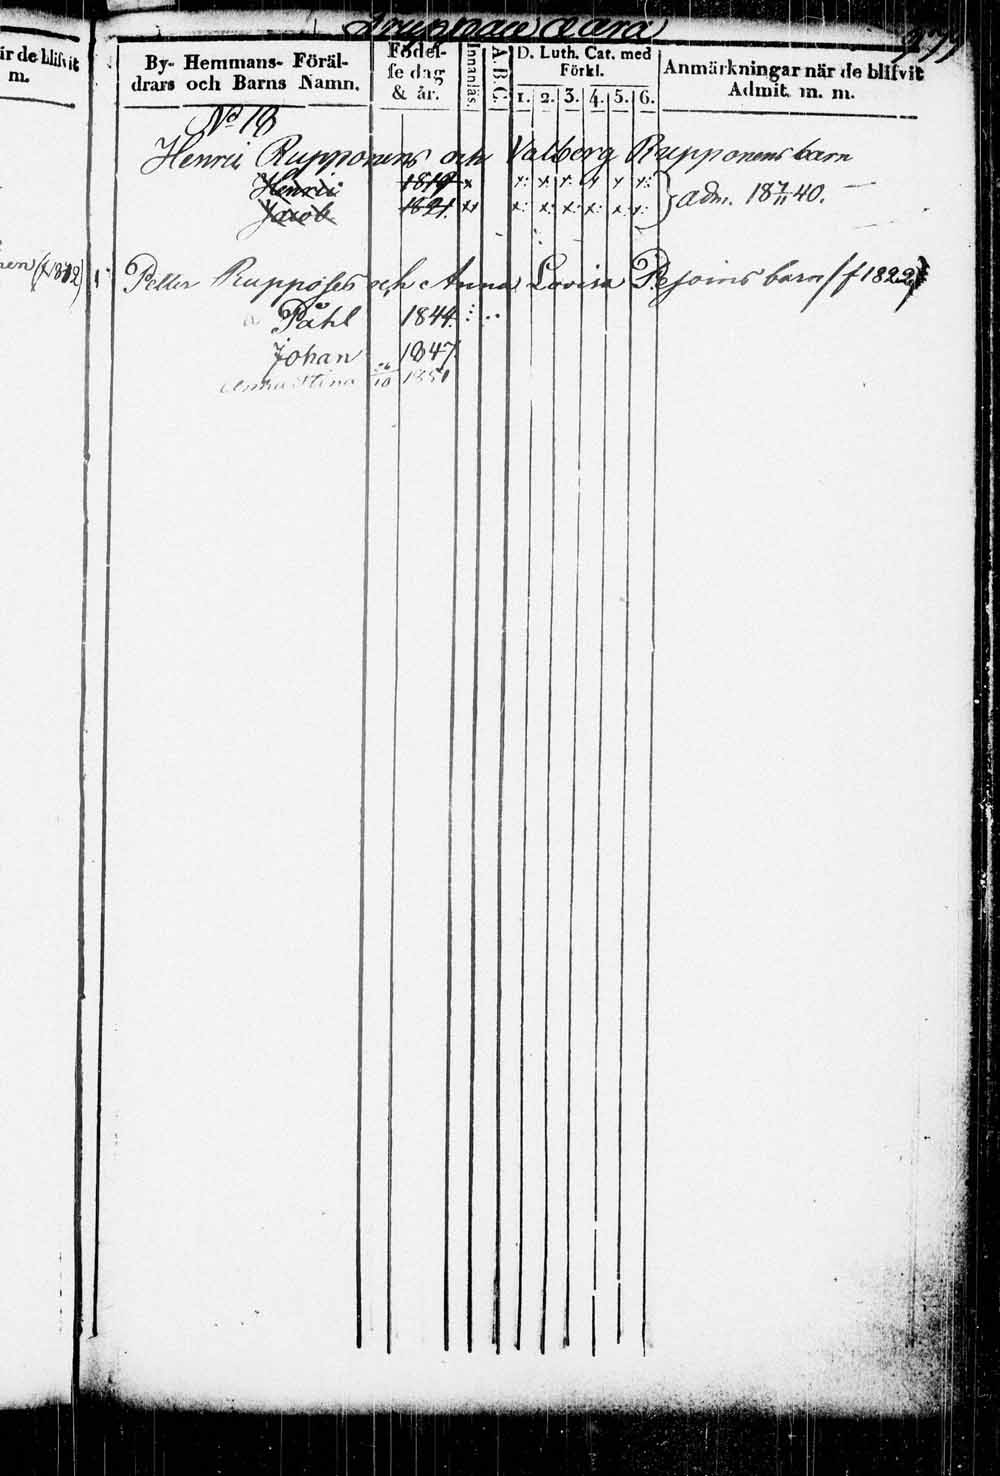 är de blifvit
m.
By- Hemmans- Föräl-
drars och Barns Namn.
Födel-
se dag
& år.
Innanläs.
A. B. C.
D. Luth. Cat. med
Förkl.
1. 2. 3. 4. 5. 6.
Anmärkningar när de blifvit
Admit. m. m.
No 18
Henric Rupponens och Valberg Rupponens barn
Henric 1819 x x x x x x x
Jacob 1821 x x x x x x x
} adm. 18 7/11 40.
Petter och Anna Lovisa barn (f 1822)
Påhl 1844
Johan 1847
Anna Stina 26/10 1851